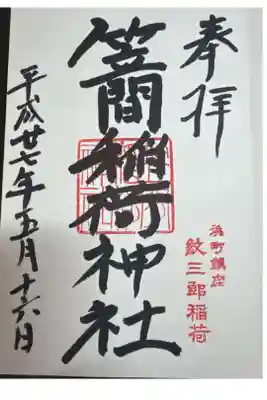 奉拝
浜町鎮座
紋三郎稲荷
笠間稲荷神社
平成廿七年五月十六日